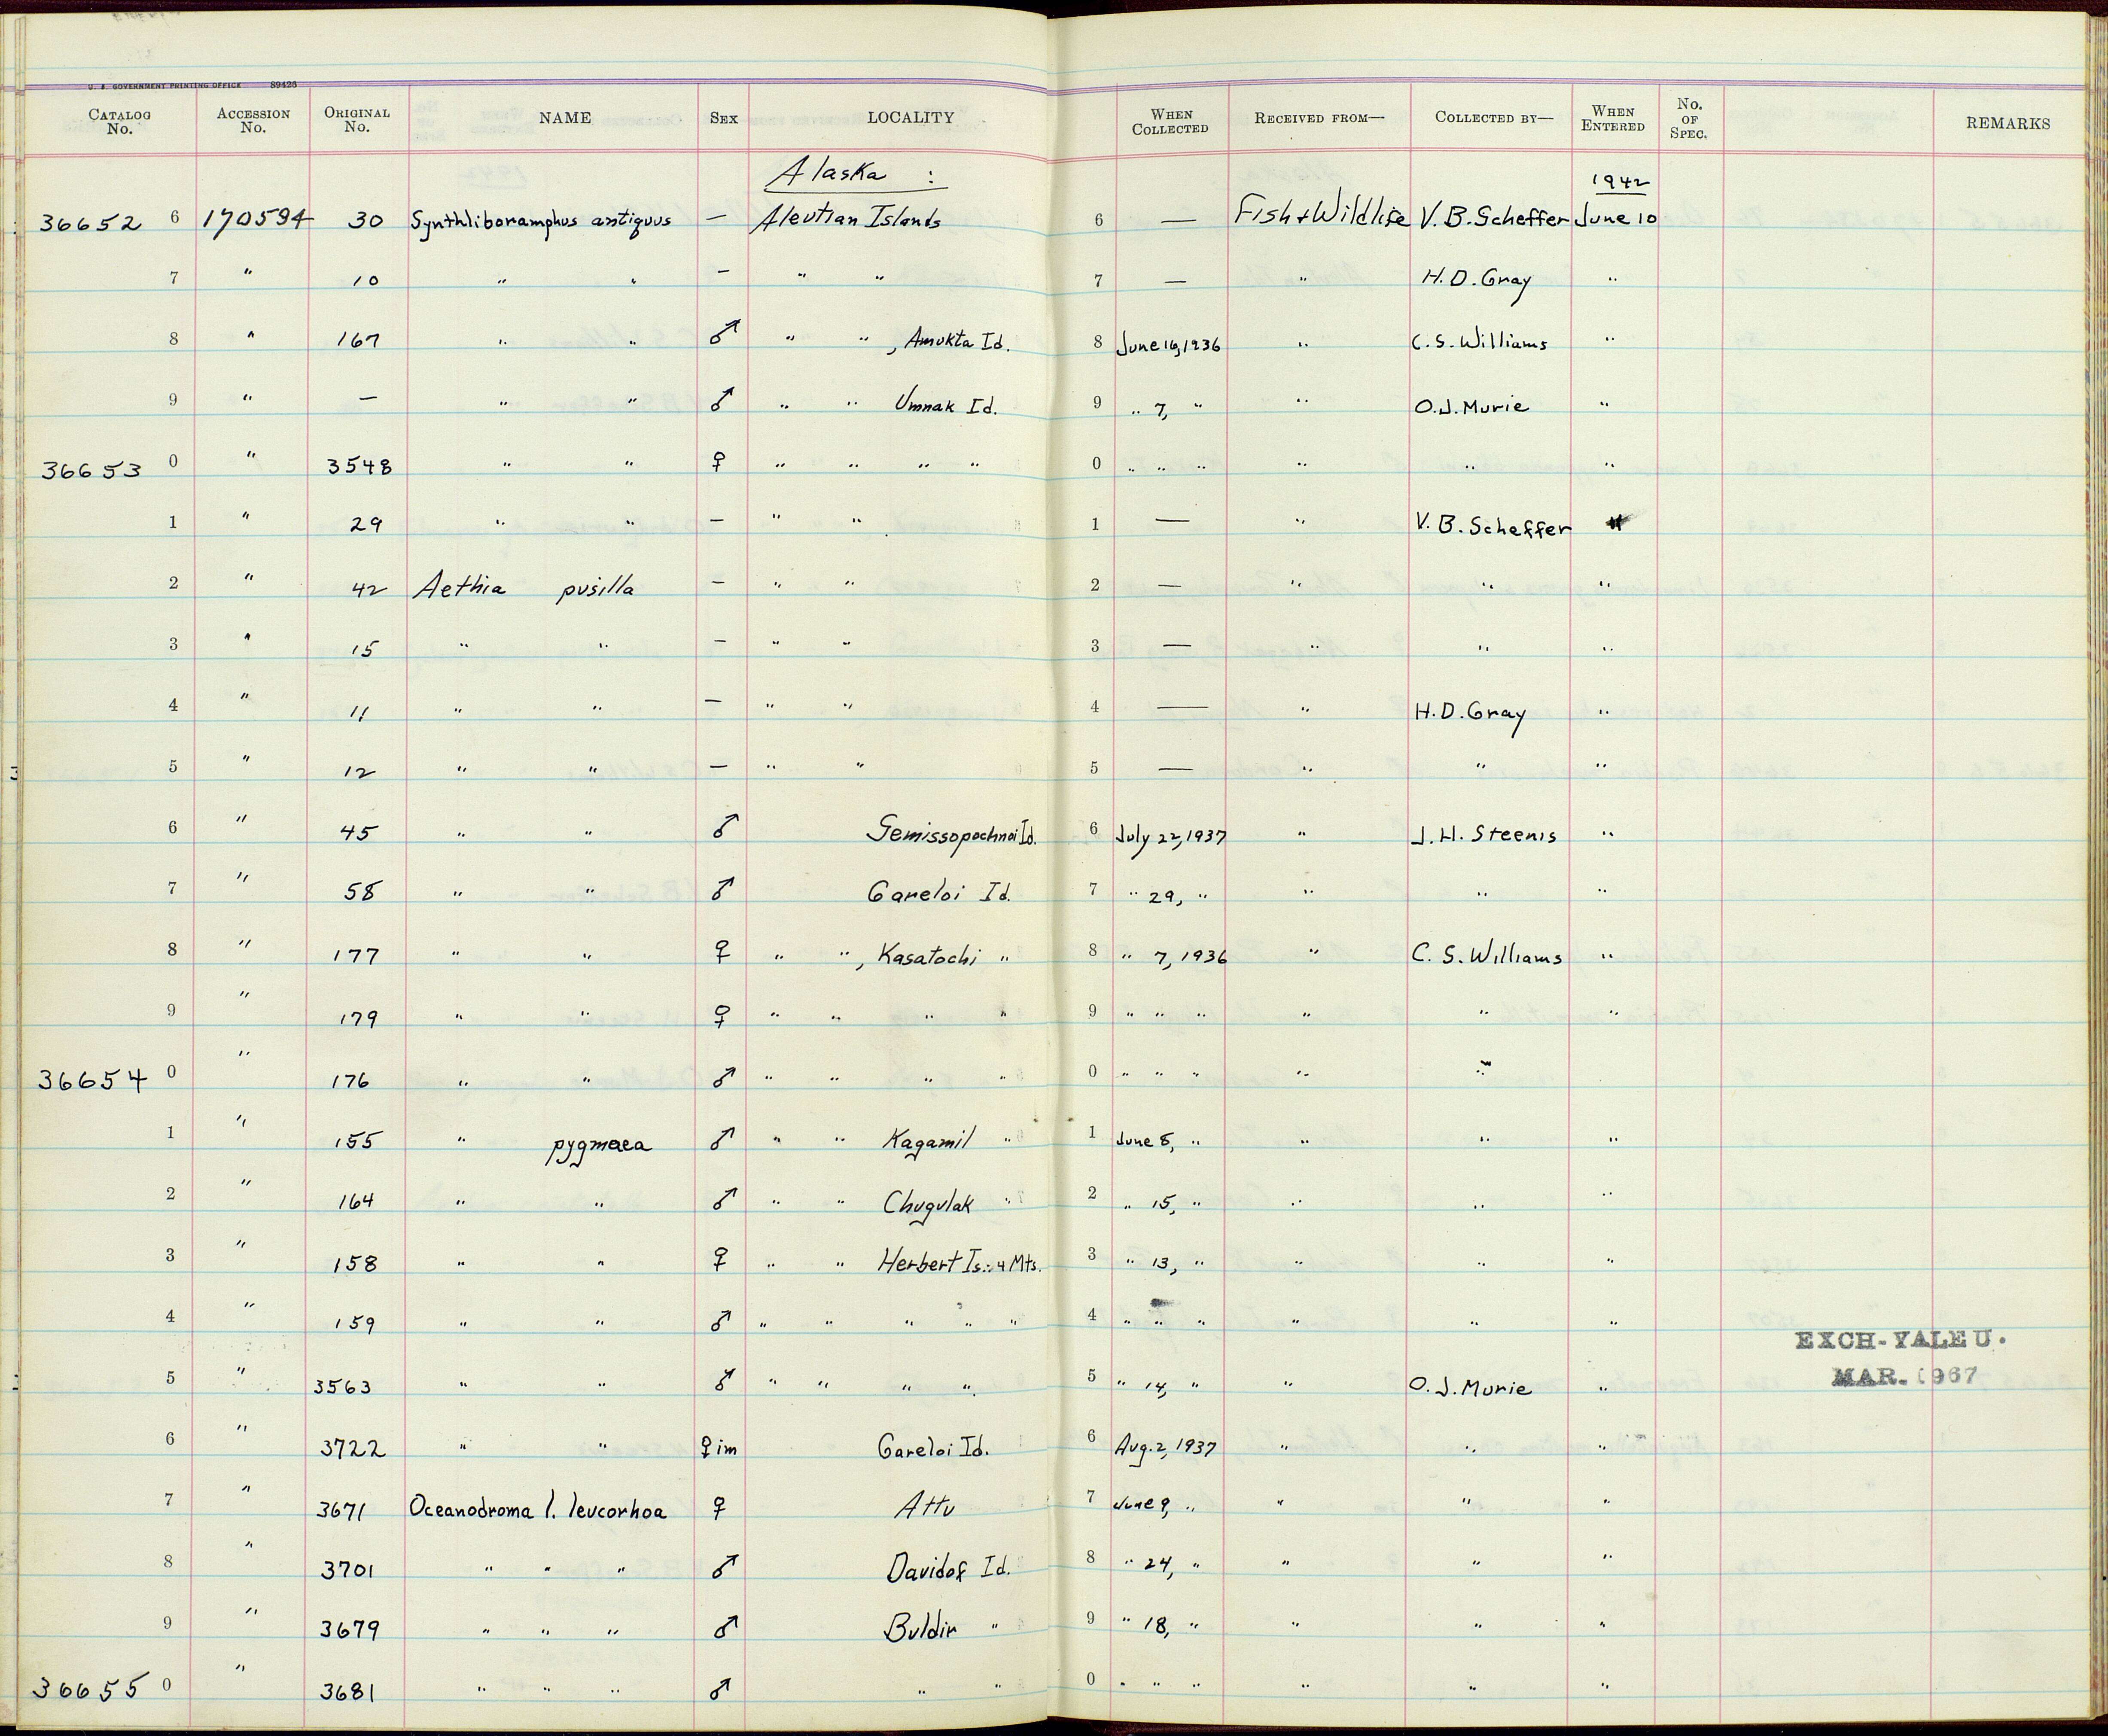 U. S. GOVERNMENT PRINTING OFFICE 89426
CATALOG No. ACCESSION No. ORIGINAL No. NAME SEX LOCALITY WHEN COLLECTED RECEIVED FROM— COLLECTED BY— WHEN ENTERED No. OF SPEC. REMARKS
Alaska : 1942
36652 6 170594 30 Synthliboramphus antiquus — Aleutian Islands 6 — Fish + Wildlife V. B. Scheffer June 10
7 " 10 " " — " " 7 — " H. D. Gray "
8 " 167 " " ♂ " ", Amukta Id. 8 June 16, 1936 " C. S. Williams "
9 " — " " ♂ " " Umnak Id. 9 " 7, " " O. J. Murie "
36653 0 " 3548 " " ♀ " " " " 0 " " " " " "
1 " 29 " " — " " 1 — " V. B. Scheffer "
2 " 42 Aethia pusilla — " " 2 — " " "
3 " 15 " " — " " 3 — " " "
4 " 11 " " — " " 4 — " H. D. Gray "
5 " 12 " " — " " 5 — " " "
6 " 45 " " ♂ Semissopochnoi Id. 6 July 22, 1937 " J. H. Steenis "
7 " 58 " " ♂ Gareloi Id. 7 " 29, " " " "
8 " 177 " " ♀ " ", Kasatochi " 8 " 7, 1936 " C. S. Williams "
9 " 179 " " ♀ " " " " 9 " " " " " "
36654 0 " 176 " " ♂ " " " " 0 " " " " "
1 " 155 " pygmaea ♂ " " Kagamil " 1 June 8, " " " "
2 " 164 " " ♂ " " Chugulak " 2 " 15, " " " "
3 " 158 " " ♀ " " Herbert Is.: 4 Mts. 3 " 13, " " " "
4 " 159 " " ♂ " " " " " 4 " " " " " "
EXCH-YALE U.
5 " 3563 " " ♂ " " " " 5 " 14, " " O. J. Murie " MAR. 1967
6 " 3722 " " ♀ im Gareloi Id. 6 Aug. 2, 1937 " " "
7 " 3671 Oceanodroma l. leucorhoa ♀ Attu 7 June 9, " " " "
8 " 3701 " " " ♂ Davidof Id. 8 " 24, " " " "
9 " 3679 " " " ♂ Buldir " 9 " 18, " " " "
36655 0 " 3681 " " " ♂ " " 0 " " " " " "